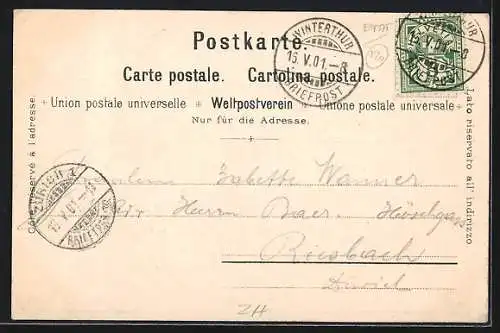 Postkarte.
Carte postale. Cartolina postale.
Union postale universelle Weltpostverein Unione postale universale
Nur für die Adresse.
Côté réservé à l'adresse.
Lato riservato all' indirizzo
WINTERTHUR
15.V.01.-8
BRIEFPOST
15.V.01.-8
HELVETIA
ZÜRICH
15.V.01.
Fräulein Babette Wanner
Herrn Baer
Riesbach
Zürich
ZH